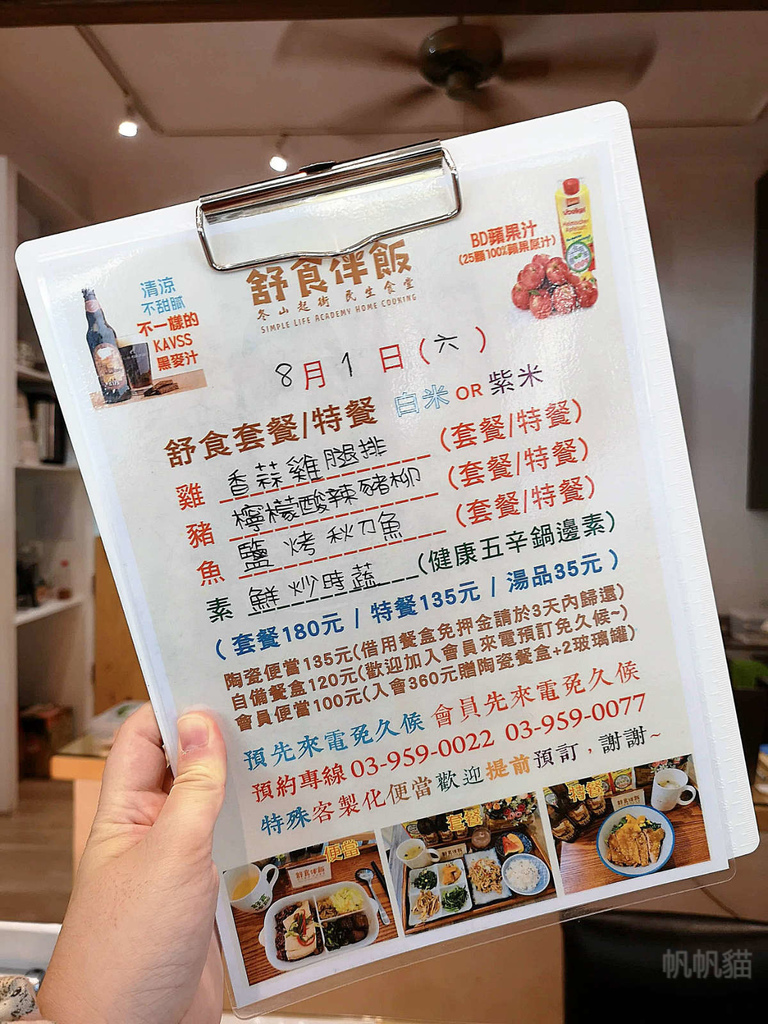 清涼
不甜膩
不一樣的
KAVSS
黑麥汁
BD蘋果汁
(25顆100%蘋果原汁)
舒食伴飯
冬山起街 民生食堂
SIMPLE LIFE ACADEMY HOME COOKING
8月1日(六)
舒食套餐/特餐 白米 OR 紫米
雞 香蒜雞腿排 (套餐/特餐)
豬 檸檬酸辣豬柳 (套餐/特餐)
魚 鹽烤秋刀魚 (套餐/特餐)
素 鮮炒時蔬 (健康五辛鍋邊素)
(套餐180元 / 特餐135元 / 湯品35元)
陶瓷便當135元(借用餐盒免押金請於3天內歸還)
自備餐盒120元(歡迎加入會員來電預訂免久候~)
會員便當100元(入會360元贈陶瓷餐盒+2玻璃罐)
預先來電免久候 會員先來電免久候
預約專線 03-959-0022 03-959-0077
特殊客製化便當歡迎提前預訂，謝謝~
便當
套餐
特餐
帆帆貓